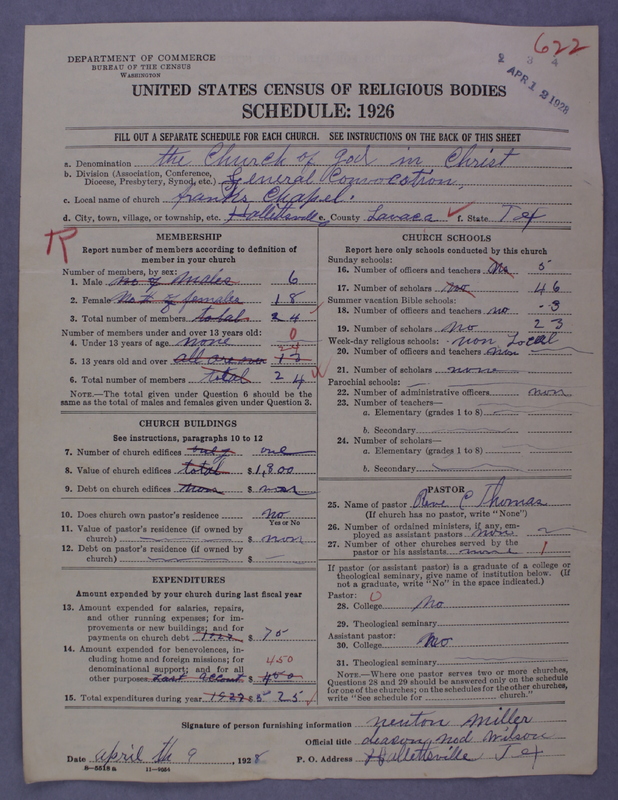 622
2 3 4
APR 12 1928
DEPARTMENT OF COMMERCE
BUREAU OF THE CENSUS
WASHINGTON
UNITED STATES CENSUS OF RELIGIOUS BODIES
SCHEDULE: 1926
FILL OUT A SEPARATE SCHEDULE FOR EACH CHURCH. SEE INSTRUCTIONS ON THE BACK OF THIS SHEET
a. Denomination the Church of god in Christ
b. Division (Association, Conference,
Diocese, Presbytery, Synod, etc.) General Convocation,
c. Local name of church Franks Chapel.
d. City, town, village, or township, etc. Hallettsville e. County Lavaca f. State Tex
R
MEMBERSHIP
Report number of members according to definition of
member in your church
Number of members, by sex:
1. Male no of males 6
2. Female No # of females 18
3. Total number of members total 24
Number of members under and over 13 years old: 0
4. Under 13 years of age none
5. 13 years old and over all are over 12
6. Total number of members total 24
NOTE.—The total given under Question 6 should be the
same as the total of males and females given under Question 3.
CHURCH BUILDINGS
See instructions, paragraphs 10 to 12
7. Number of church edifices only one
8. Value of church edifices total $ 1,800
9. Debt on church edifices $
10. Does church own pastor's residence no
Yes or No
11. Value of pastor's residence (if owned by
church) $ non
12. Debt on pastor's residence (if owned by
church) $
EXPENDITURES
Amount expended by your church during last fiscal year
13. Amount expended for salaries, repairs,
and other running expenses; for im-
provements or new buildings; and for
payments on church debt 1927 $ 75
14. Amount expended for benevolences, in-
cluding home and foreign missions; for
denominational support; and for all 450
other purposes Last account $ 450
15. Total expenditures during year 1927 $ 525
CHURCH SCHOOLS
Report here only schools conducted by this church
Sunday schools:
16. Number of officers and teachers no 5
17. Number of scholars no 46
Summer vacation Bible schools:
18. Number of officers and teachers no 3
19. Number of scholars no 23
Week-day religious schools: non Local
20. Number of officers and teachers non
21. Number of scholars none
Parochial schools:
22. Number of administrative officers non
23. Number of teachers—
a. Elementary (grades 1 to 8)
b. Secondary
24. Number of scholars—
a. Elementary (grades 1 to 8)
b. Secondary
PASTOR
25. Name of pastor Reve C Thomas
(If church has no pastor, write "None")
26. Number of ordained ministers, if any, em-
ployed as assistant pastors none
27. Number of other churches served by the
pastor or his assistants none 1
If pastor (or assistant pastor) is a graduate of a college or
theological seminary, give name of institution below. (If
not a graduate, write "No" in the space indicated.)
Pastor: 0
28. College no
29. Theological seminary
Assistant pastor:
30. College no
31. Theological seminary
NOTE.—Where one pastor serves two or more churches,
Questions 28 and 29 should be answered only on the schedule
for one of the churches; on the schedules for the other churches,
write "See schedule for church."
Signature of person furnishing information newton miller
Official title deacon, ned Wilson
Date april th 9, 1928 P. O. Address Hallettsville Tex
8—5518 a 11—9664